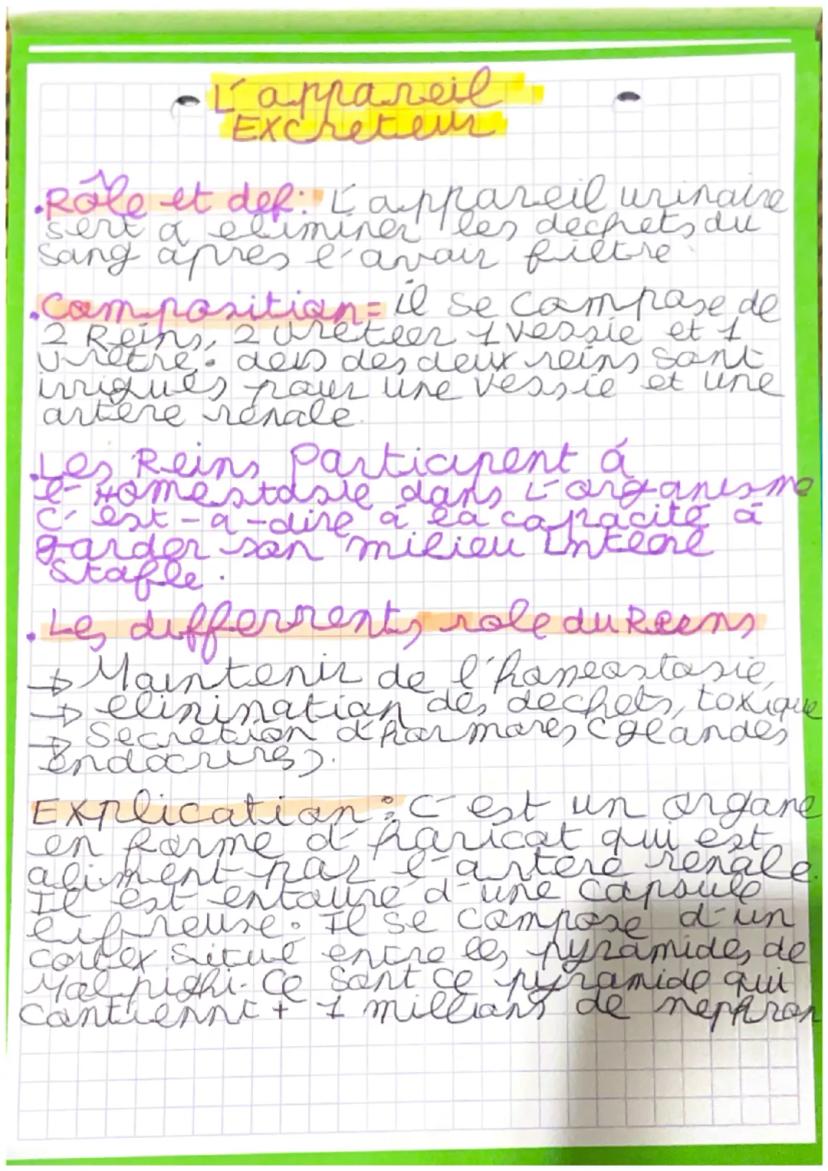 L'appareil
Excreteur
.Rôle et def: L'appareil urinaire
sert a eliminer les dechets du
sang apres l'avoir filtre
.Composition= il se compose de
2 Reins, 2 ureteer 1 vessie et 1
uretre. des deux reins sont
irrigués pour une vessie et une
artere renale.
.Les Reins Participent á
l'Homestasie dans L'organisme
C'est-a-dire á la capacité á
garder son milieu intecre
stable.
. Les differrents role du Reeins
→ Maintenir de l'homeostasie,
→ elinination des dechets, toxique
→ Secretion d'hormones (glandes
endocrines).
Explication: C'est un organe
en forme d'haricot qui est
aliment par l'artere renale.
Il est entouré d'une capsule
fibreuse. Il se compose d'un
cortex situé entre les pyramides de
Malpighi. Ce sont ce pyramide qui
contiennt + 1 millions de nephron